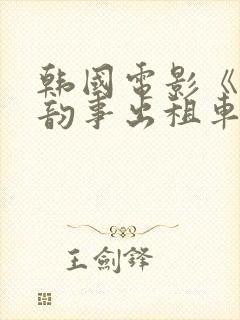 韩國電影《
韵事出租車
王劍鋒